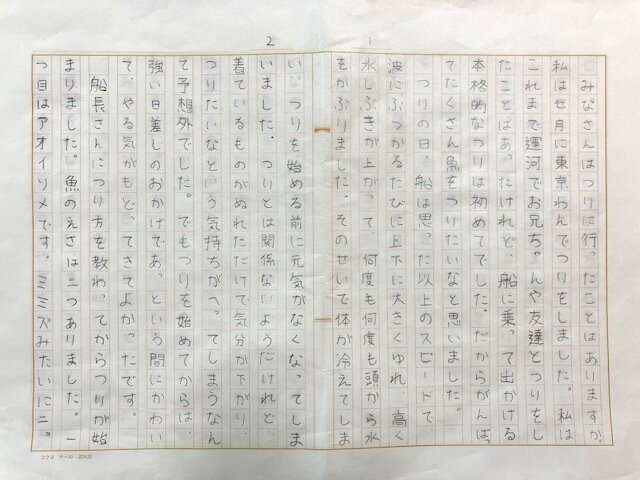 1
みなさんはつりに行ったことはありますか。
私は七月に東京わんでつりをしました。私は
これまで運河でお兄ちゃんや友達とつりをし
たことはあったけれど、船に乗って出かける
本格的なつりは初めてでした。だからがんばっ
てたくさん魚をつりたいなと思いました。
つりの日、船は思った以上のスピードで、
波にぶつかるたびに上下に大きくゆれ、高く
水しぶきが上がって、何度も何度も頭から水
をかぶりました。そのせいで体が冷えてしま
2
い、つりを始める前に元気がなくなってしま
いました。つりとは関係ないようだけれど、
着ているものがぬれただけで気分が下がり、
つりたいなという気持ちがへってしまうなん
て予想外でした。でもつりを始めてからは、
強い日差しのおかげであっという間にかわい
て、やる気がもどってきてよかったです。
船長さんにつり方を教わってからつりが始
まりました。魚のえさは二つありました。一
つ目はアオイソメです。ミミズみたいにニ。
コクヨ ケ-10 20×20